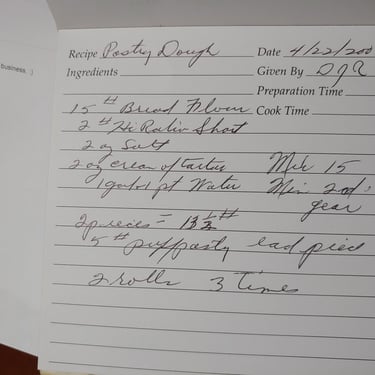 business. :)
Recipe Pastry Dough Date 4/22/200
Ingredients Given By DJR
Preparation Time
15 # Bread Flour Cook Time
2 # Hi Ratio Short
2 oz Salt
2 oz cream of tartar Mix 15
1 gal 1 pt Water Min 2nd
gear
2 pieces = 13 1/2 #
5 # puff pasty ead piece
2 rolls 3 Times